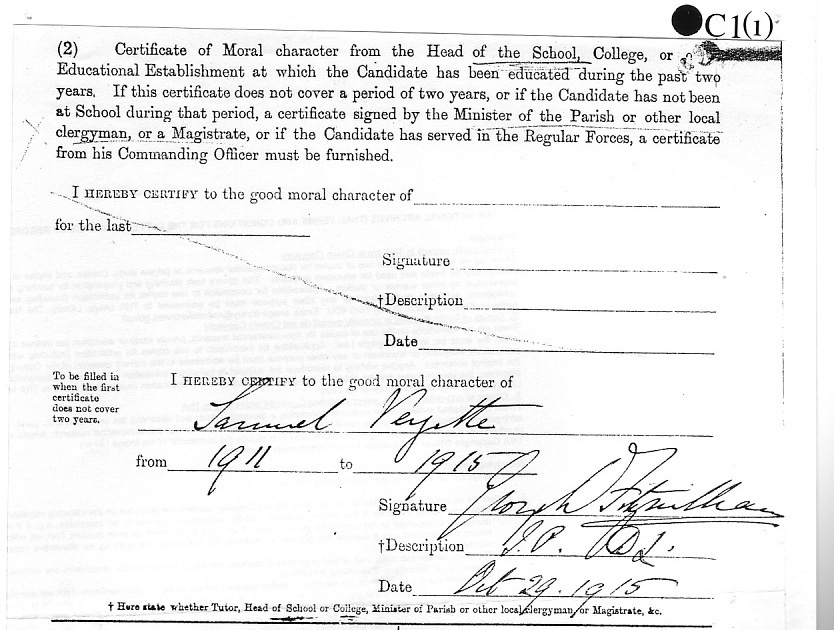 C1(1)
(2) Certificate of Moral character from the Head of the School, College, or
Educational Establishment at which the Candidate has been educated during the past two
years. If this certificate does not cover a period of two years, or if the Candidate has not been
at School during that period, a certificate signed by the Minister of the Parish or other local
clergyman, or a Magistrate, or if the Candidate has served in the Regular Forces, a certificate
from his Commanding Officer must be furnished.
I HEREBY CERTIFY to the good moral character of
for the last
Signature
†Description
Date
To be filled in
when the first
certificate
does not cover
two years.
I HEREBY CERTIFY to the good moral character of
Samuel
from 1911 to 1915
Signature Joseph
†Description J.P.
Date Oct 29. 1915
† Here state whether Tutor, Head of School or College, Minister of Parish or other local clergyman, or Magistrate, &c.